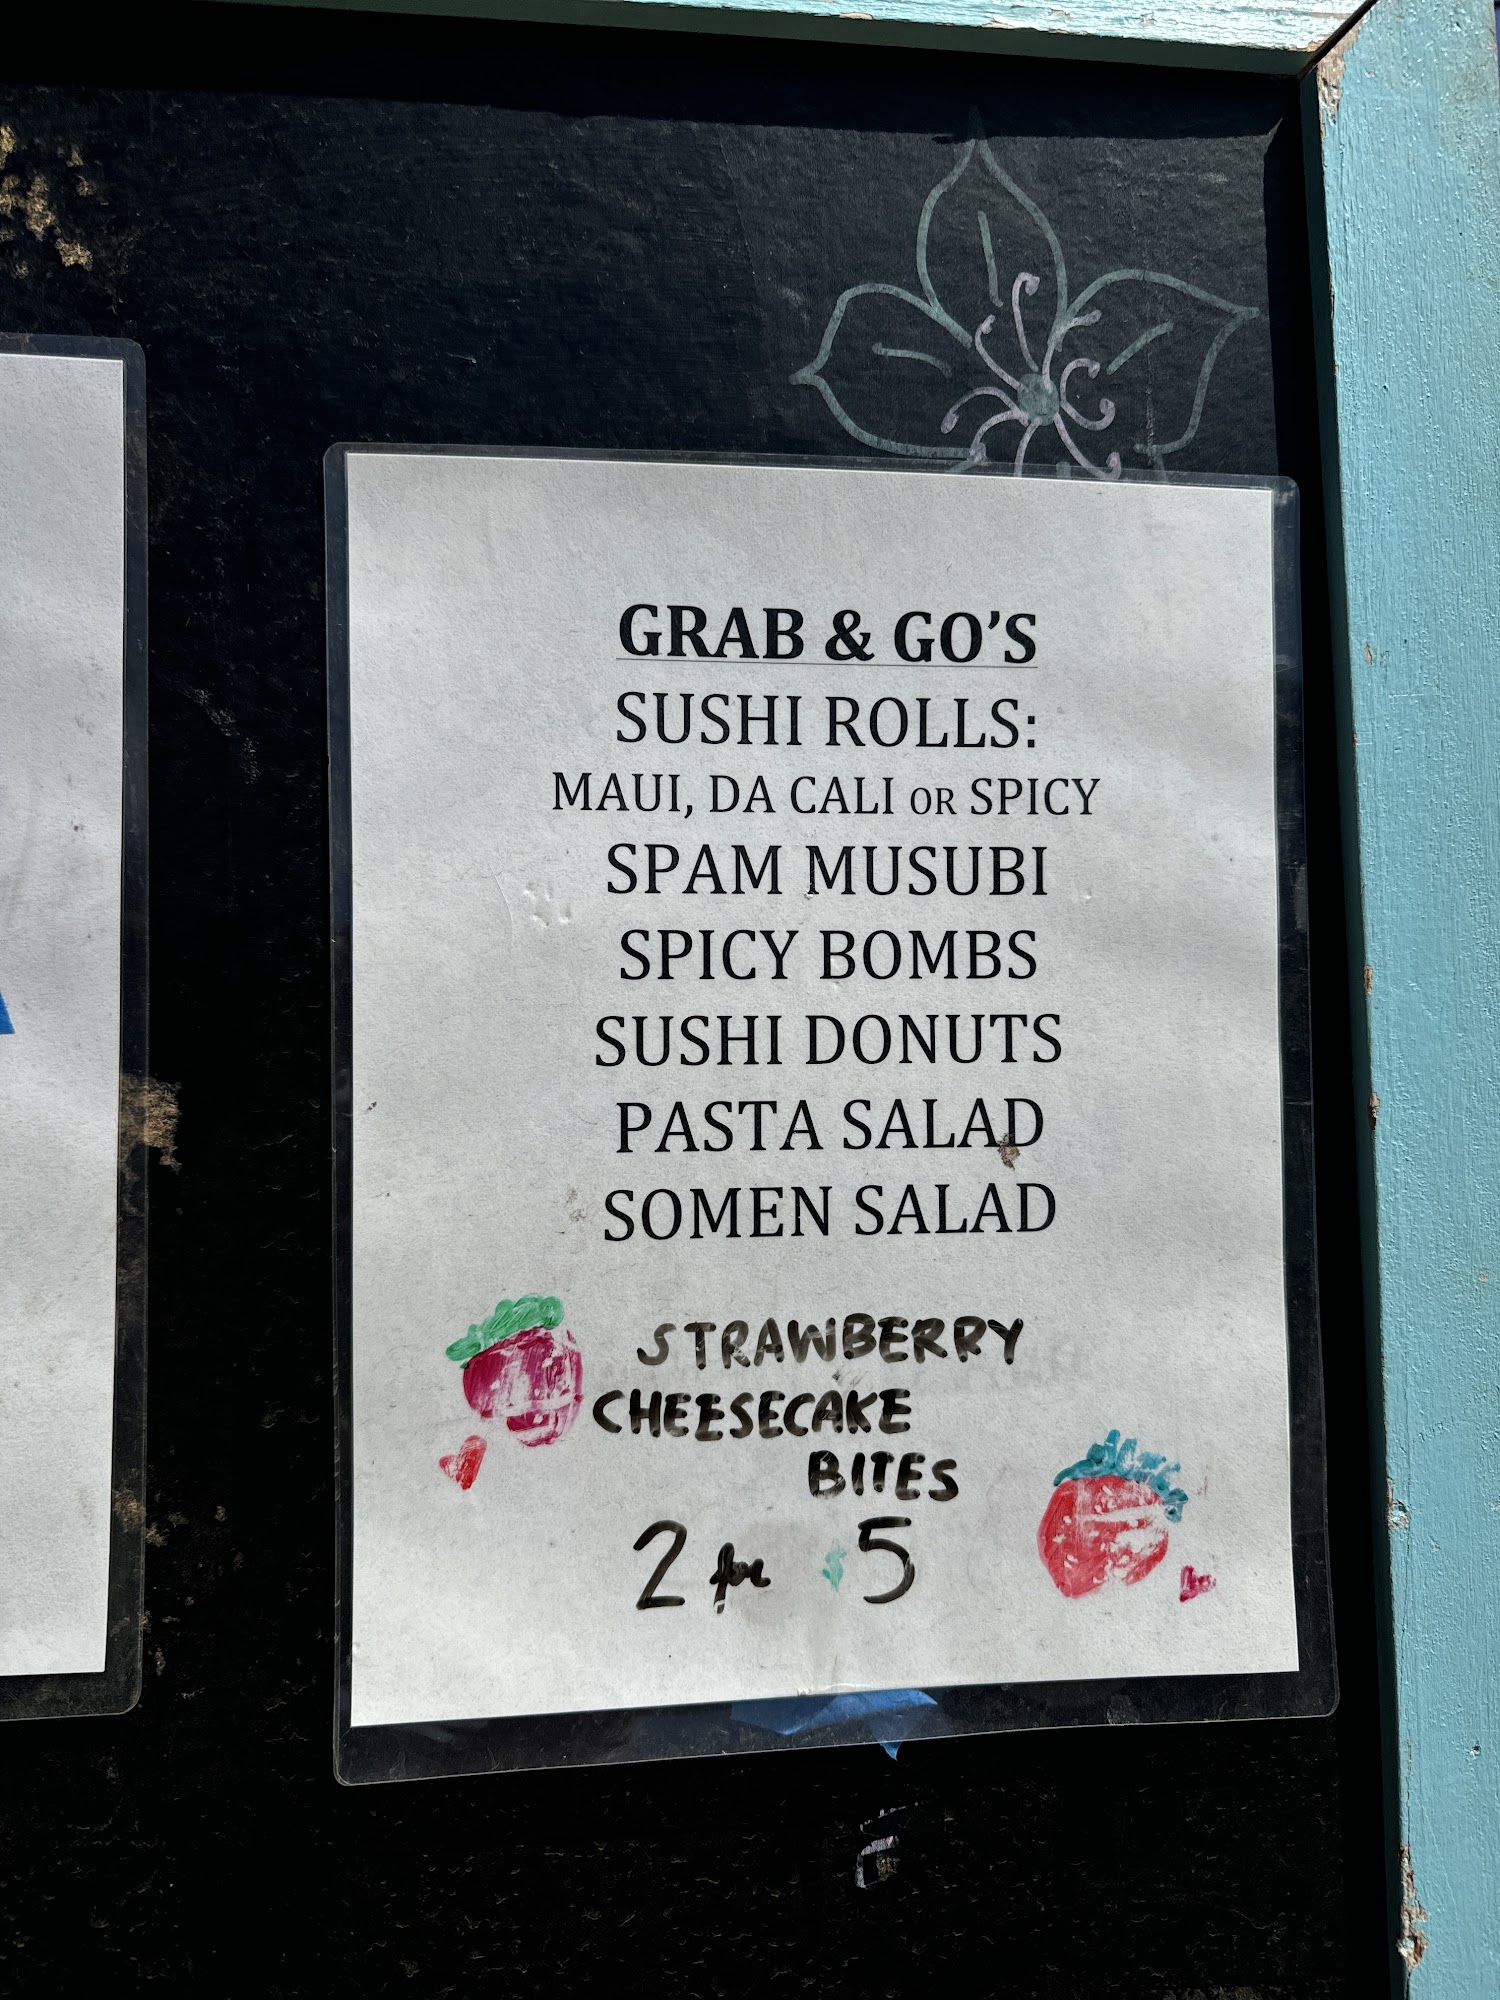 GRAB & GO'S
SUSHI ROLLS:
MAUI, DA CALI OR SPICY
SPAM MUSUBI
SPICY BOMBS
SUSHI DONUTS
PASTA SALAD
SOMEN SALAD
STRAWBERRY
CHEESECAKE
BITES
2 for $5